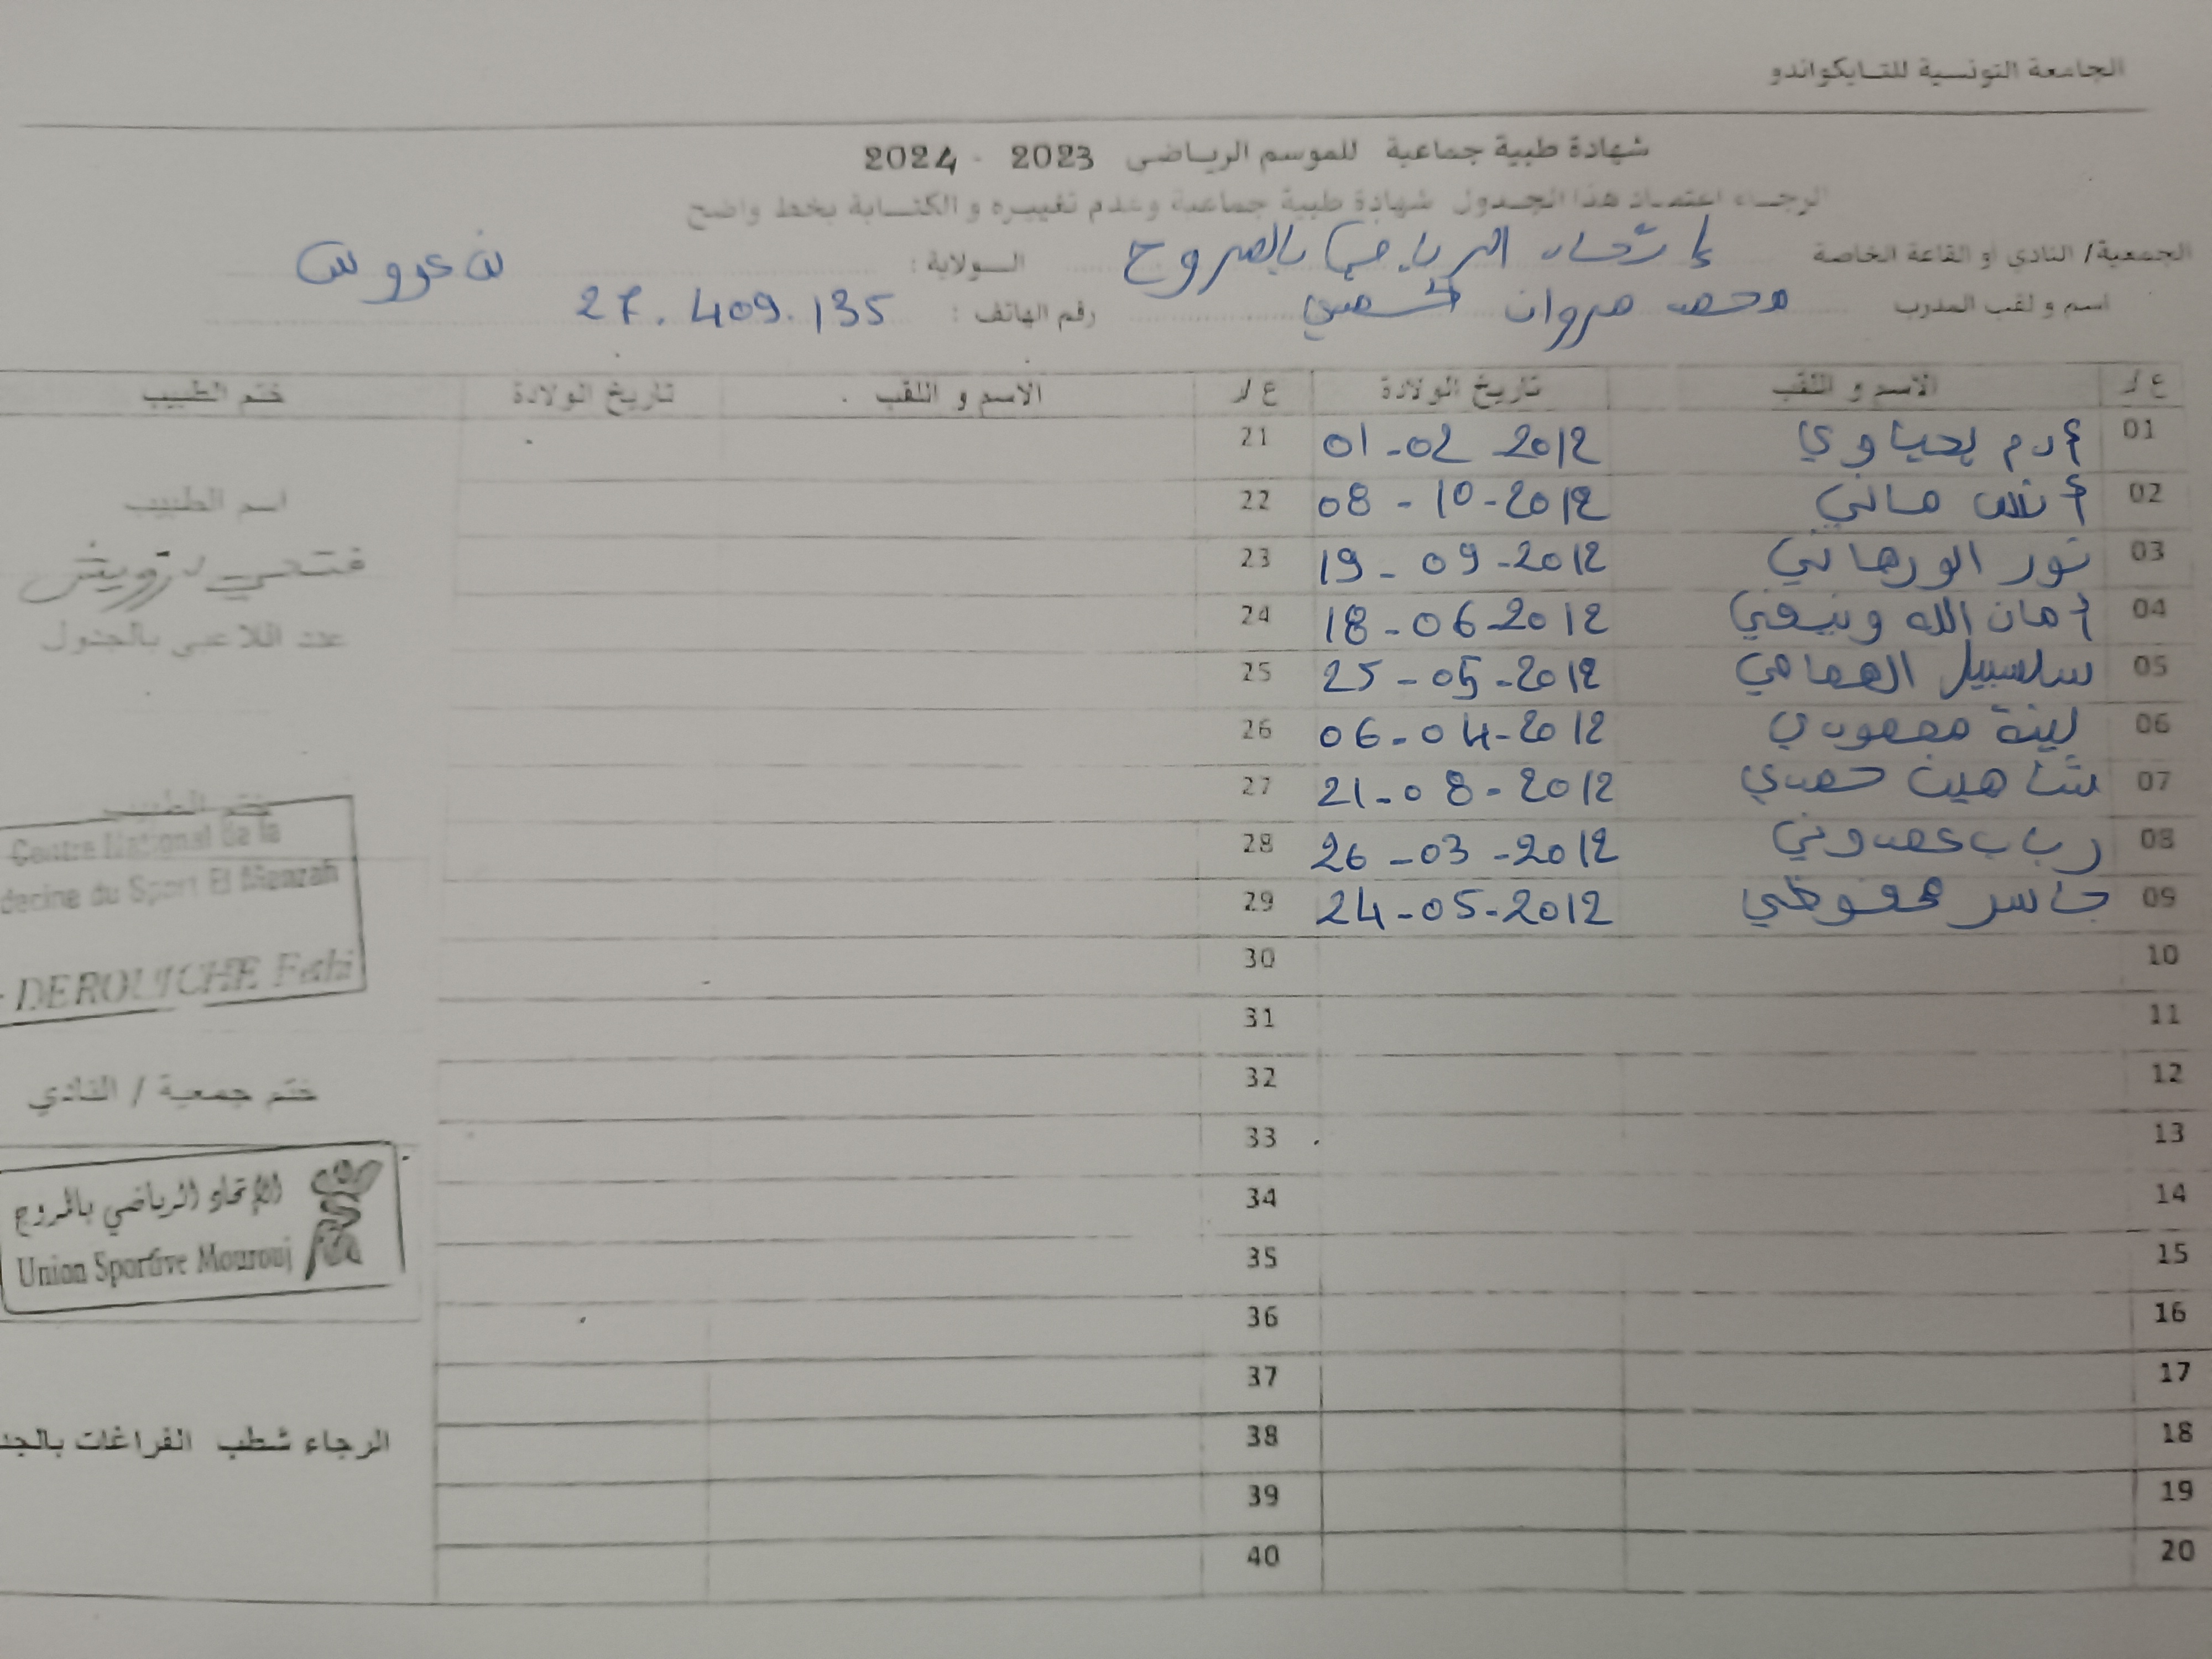 الجامعة التونسية للتايكواندو
شهادة طبية جماعية للموسم الرياضي 2023 - 2024
الرجاء اعتماد هذا الجدول شهادة طبية جماعية وعدم تغييره و الكتابة بخط واضح
الجمعية/ النادي او القاعة الخاصة الاتحاد الرياضي بالمروج الولاية : بن عروس
اسم و لقب المدرب محمد مروان رقم الهاتف : 27.409.135
ع/ر الاسم و اللقب تاريخ الولادة ع/ر الاسم و اللقب تاريخ الولادة ختم الطبيب
01 آدم يحياوي 01-02 2012 21
02 أنس ماني 08-10-2012 22
اسم الطبيب
03 نور الورهاني 19-09-2012 23
فتحي درويش
04 أمان الله ونيفي 18-06-2012 24
عدد اللاعبي بالجدول
05 سلسبيل الهمامي 25-05-2012 25
06 لينة 06-04-2012 26
07 شاهين حمدي 21-08-2012 27
ختم الطبيب
Centre National de la
08 رباب عمدوني 26-03-2012 28
decine du Sport El Menzah
09 جاسر محفوظي 24-05-2012 29
DEROUICHE Fethi
10 30
11 31
12 32
ختم جمعية / النادي
13 33
14 34
الإتحاد الرياضي بالمروج
15 35
Union Sportive Mourouj
16 36
17 37
18 38
الرجاء شطب الفراغات بالجد
19 39
20 40